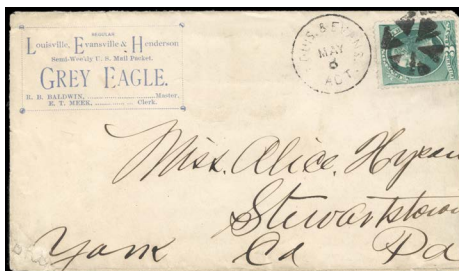 REGULAR
Louisville, Evansville & Henderson
Semi-Weekly U. S. Mail Packet,
GREY EAGLE.
B. B. BALDWIN, ........................ Master.
E. T. MEEK, ............... Clerk.
LOUIS. & EVANS.
MAY
6
AGT.
Miss. Alice.
Stewartstown
York Co Pa